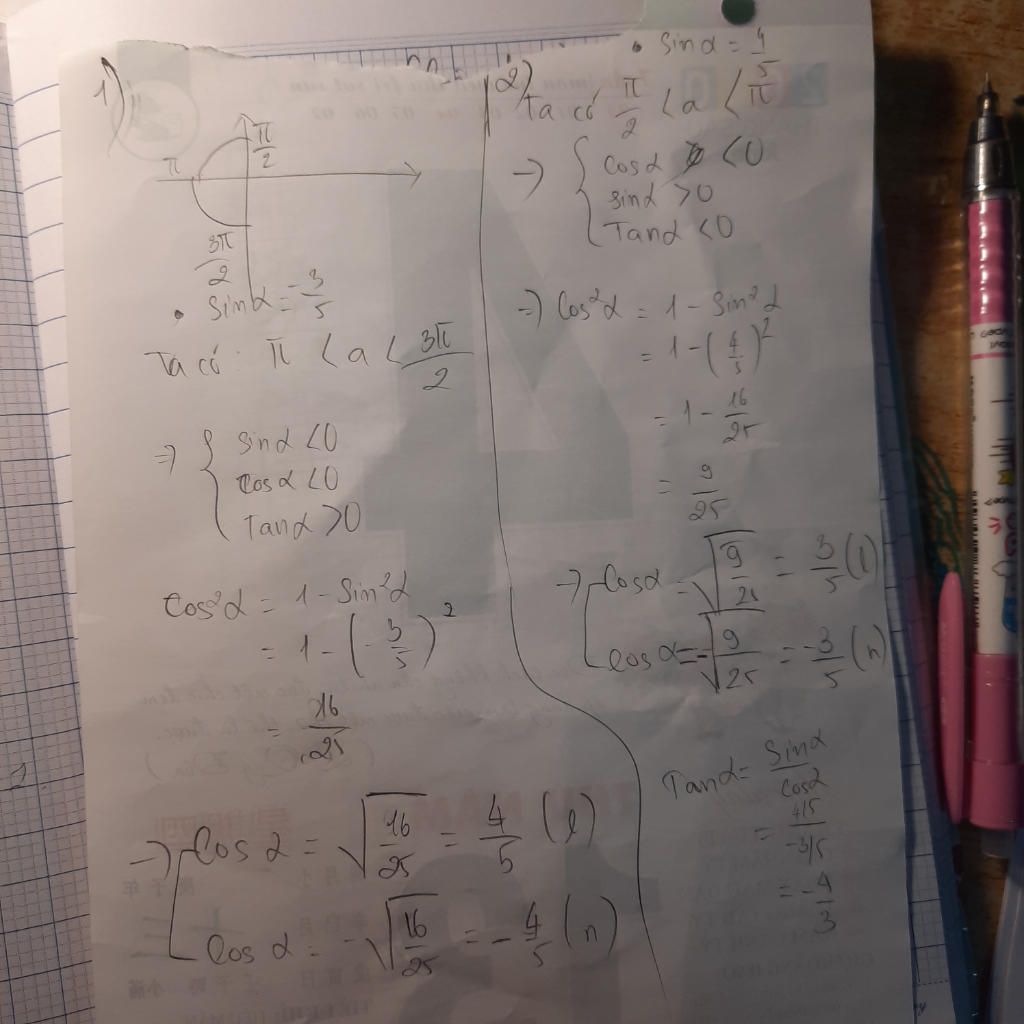 1)
π/2
π
3π/2
• Sinα = -3/5
Ta có: π < a < 3π/2
=> { sinα <0
cosα <0
Tanα >0
Cos²α = 1 - Sin²α
= 1 - (-3/5)²
= 16/25
=> [ Cos α = √16/25 = 4/5 (l)
Cos α = -√16/25 = -4/5 (n)
2)
• Sinα = 4/5
Ta có π/2 < a < π
=> { cosα <0
sinα >0
Tanα <0
=> Cos²α = 1 - Sin²α
= 1 - (4/5)²
= 1 - 16/25
= 9/25
=> [ Cosα = √9/25 = 3/5 (l)
Cosα = -√9/25 = -3/5 (n)
Tanα = Sinα/Cosα
= 4/5/-3/5
= -4/3